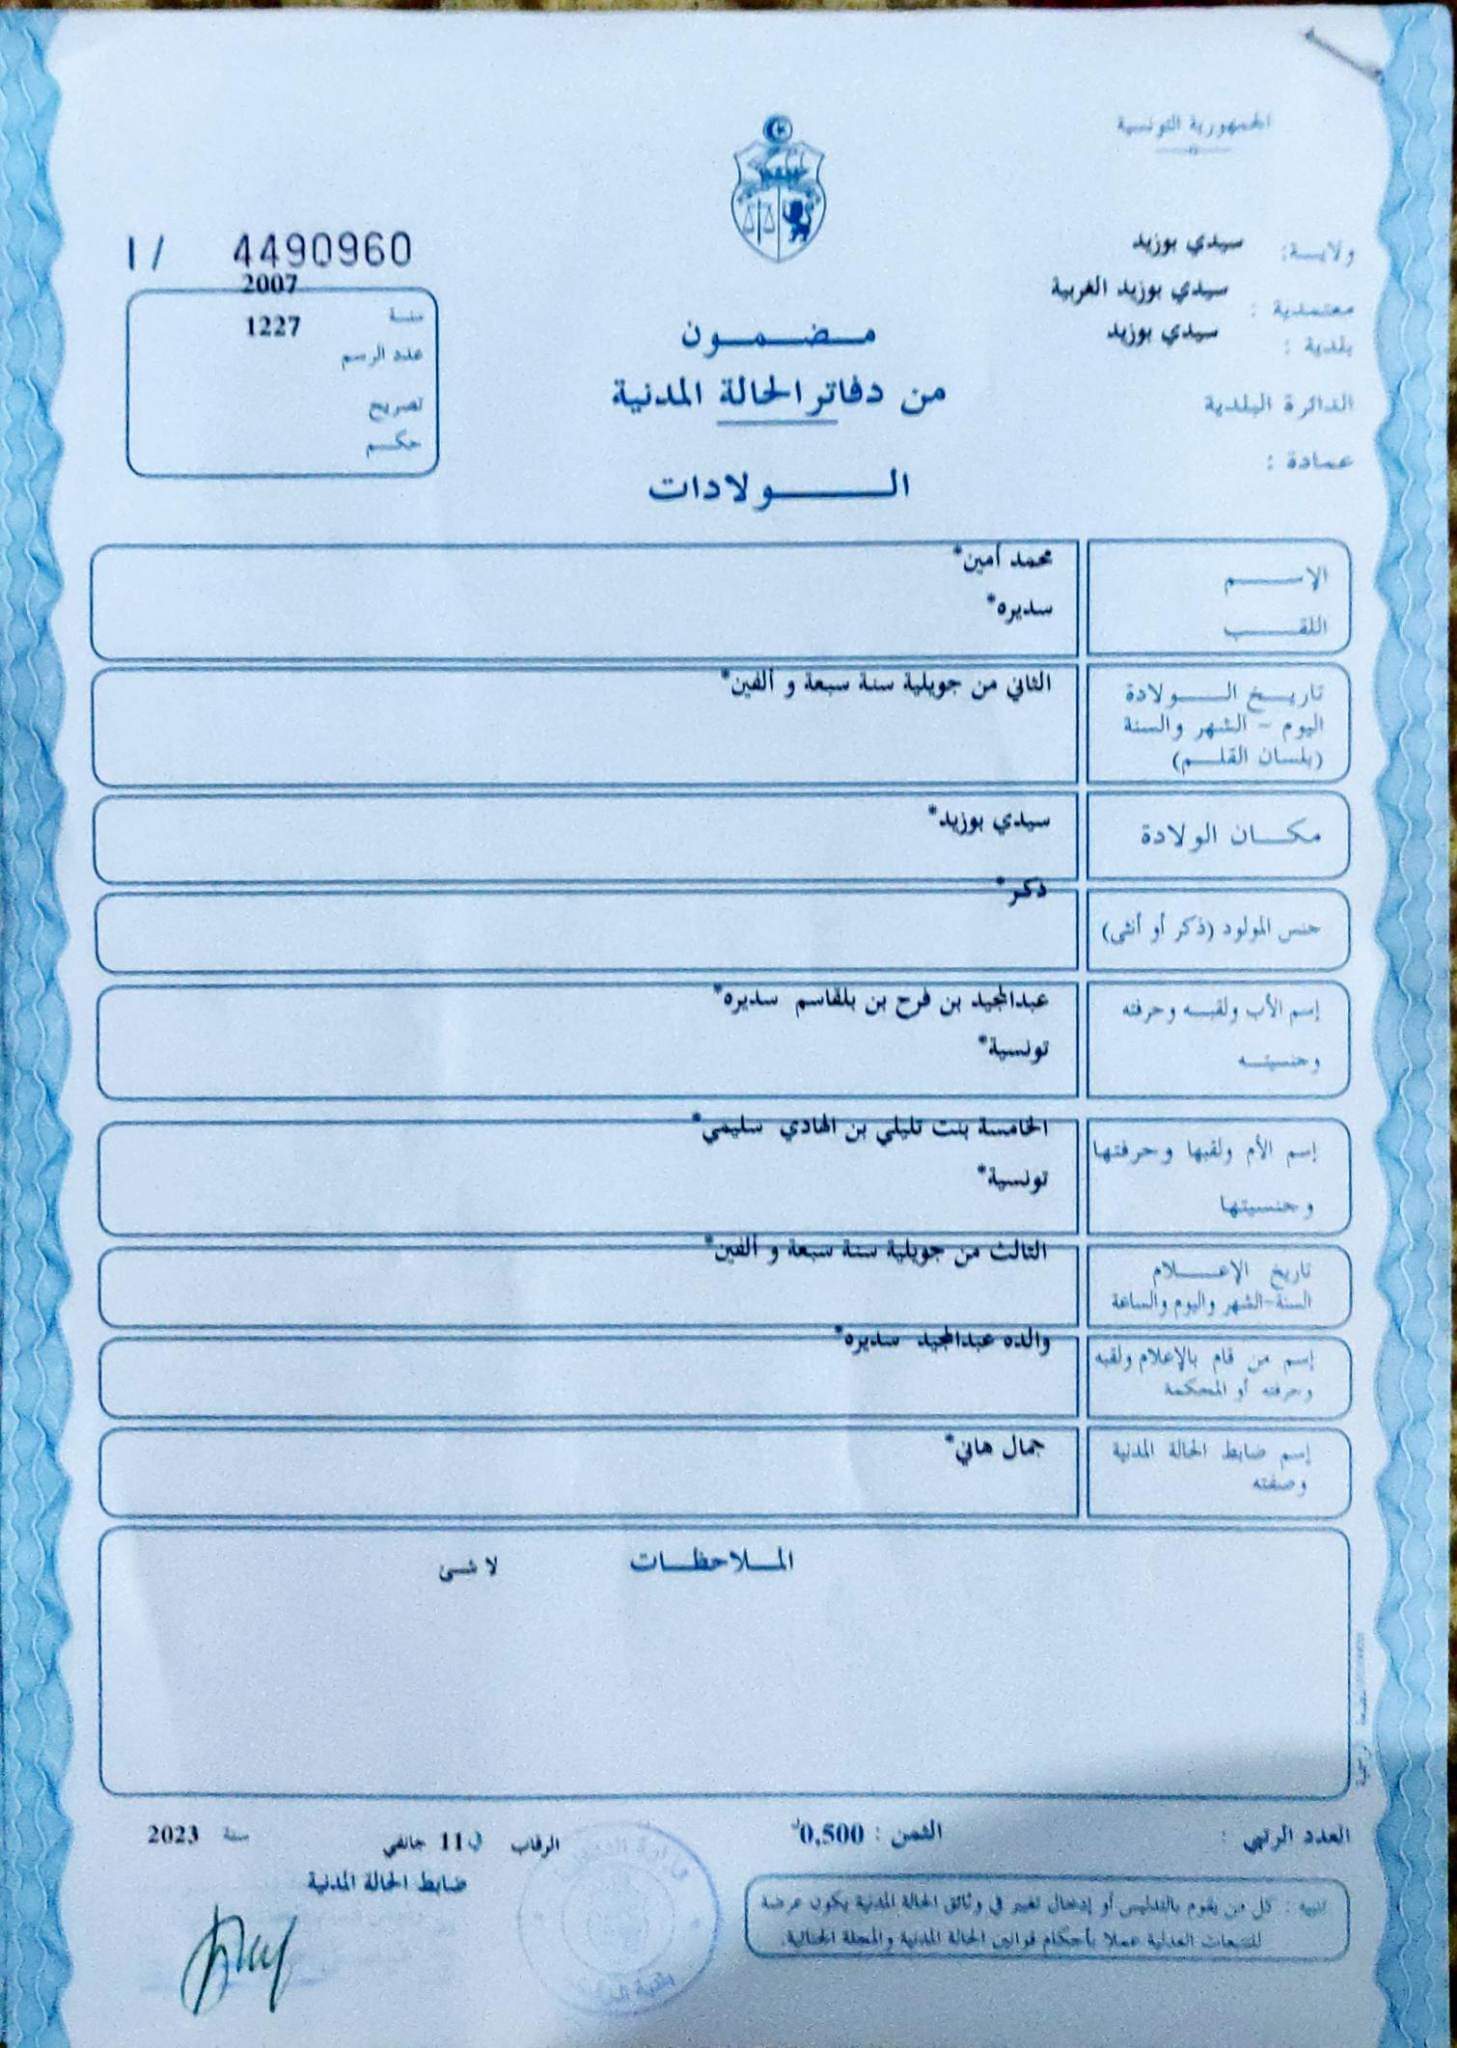 الجمهورية التونسية
ولايـــة: سيدي بوزيد
معتمدية : سيدي بوزيد الغربية
بلدية : سيدي بوزيد
الدائرة البلدية
عمادة :
I / 4490960
سنة 2007
عدد الرسم 1227
تصريح
حكم
مـضـمـون
من دفاتر الحالة المدنية
الـــولادات
الاســـم محمد أمين*
اللقـــب سديره*
تاريـخ الـــولادة الثاني من جويلية سنة سبعة و ألفين*
اليوم - الشهر والسنة
(بلسان القلـــم)
مكـــان الولادة سيدي بوزيد*
جنس المولود (ذكر أو أنثى) ذكر*
إسم الأب ولقبـــه وحرفته عبدالمجيد بن فرح بن بلقاسم سديره*
وجنسيتـــه تونسية*
إسم الأم ولقبها وحرفتها الخامسة بنت تليلي بن الهادي سليمي*
وجنسيتها تونسية*
تاريخ الإعـــلام الثالث من جويلية سنة سبعة و ألفين*
السنة-الشهر واليوم والساعة
إسم من قام بالإعلام ولقبه والده عبدالمجيد سديره*
وحرفته أو المحكمة
إسم ضابط الحالة المدنية جمال هاني*
وصفته
المـــلاحظـــات لا شئ
العدد الرتبي : الثمن : 0,500
الرقاب في 11 جانفي سنة 2023
ضابط الحالة المدنية
تنبيه : كل من يقوم بالتدليس أو إدخال تغيير في وثائق الحالة المدنية يكون عرضة
للتتبعات العدلية عملا بأحكام قوانين الحالة المدنية والمجلة الجنائية.